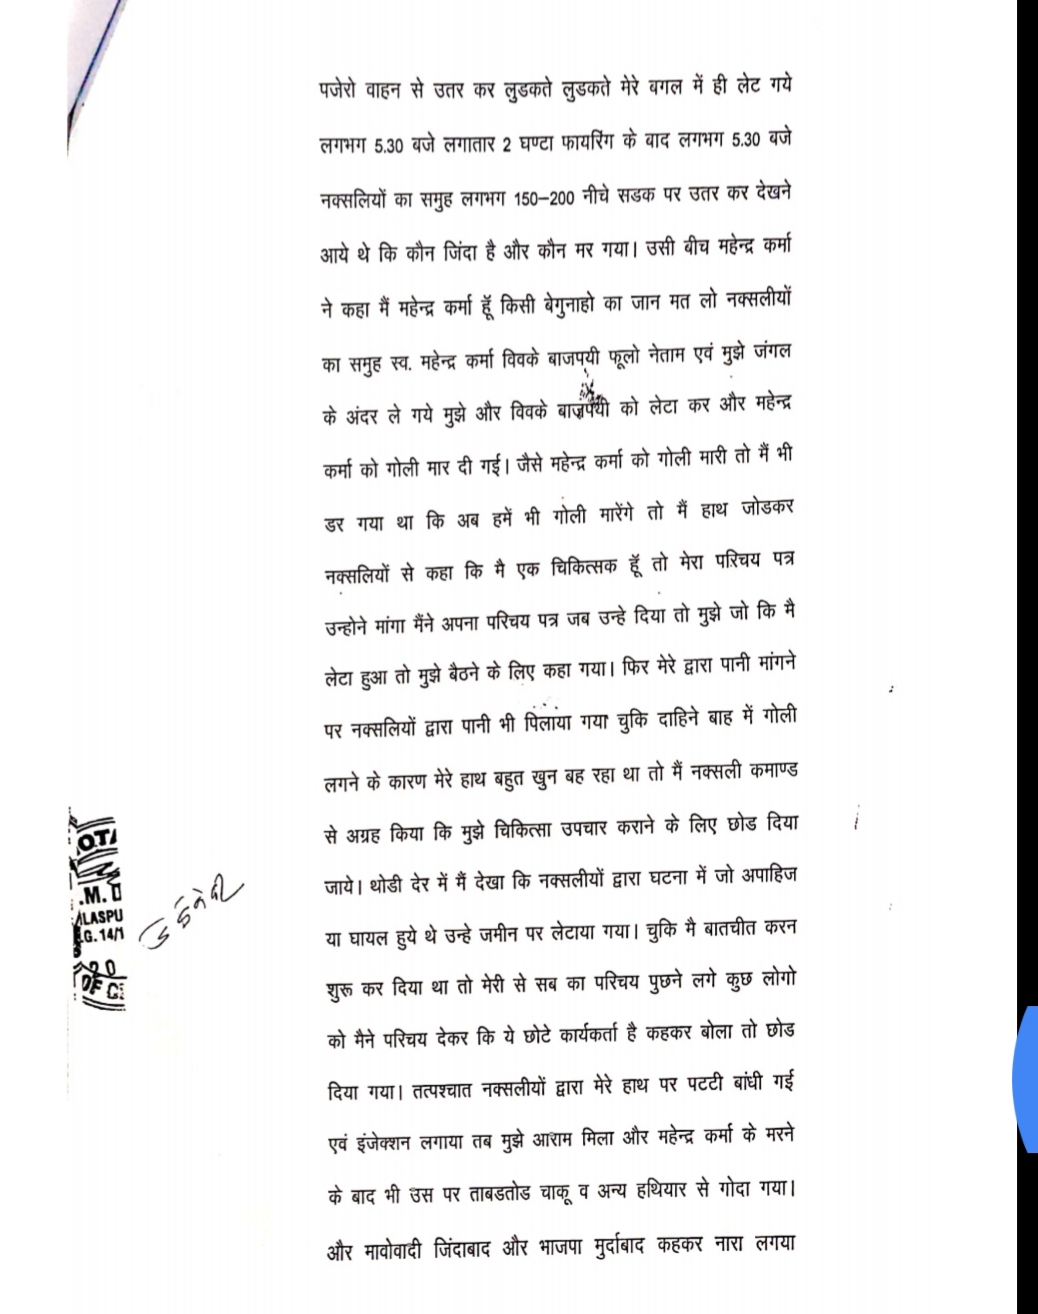 पजेरो वाहन से उतर कर लुडकते लुडकते मेरे बगल में ही लेट गये
लगभग 5.30 बजे लगातार 2 घण्टा फायरिंग के बाद लगभग 5.30 बजे
नक्सलियों का समुह लगभग 150–200 नीचे सडक पर उतर कर देखने
आये थे कि कौन जिंदा है और कौन मर गया। उसी बीच महेन्द्र कर्मा
ने कहा मैं महेन्द्र कर्मा हॅू किसी बेगुनाहो का जान मत लो नक्सलीयों
का समुह स्व. महेन्द्र कर्मा विवके बाजपयी फूलो नेताम एवं मुझे जंगल
के अंदर ले गये मुझे और विवके बाजपयी को लेटा कर और महेन्द्र
कर्मा को गोली मार दी गई। जैसे महेन्द्र कर्मा को गोली मारी तो मैं भी
डर गया था कि अब हमें भी गोली मारेंगे तो मैं हाथ जोडकर
नक्सलियों से कहा कि मै एक चिकित्सक हॅू तो मेरा परिचय पत्र
उन्होने मांगा मैंने अपना परिचय पत्र जब उन्हे दिया तो मुझे जो कि मै
लेटा हुआ तो मुझे बैठने के लिए कहा गया। फिर मेरे द्वारा पानी मांगने
पर नक्सलियों द्वारा पानी भी पिलाया गया चुकि दाहिने बाह में गोली
लगने के कारण मेरे हाथ बहुत खुन बह रहा था तो मैं नक्सली कमाण्ड
से अग्रह किया कि मुझे चिकित्सा उपचार कराने के लिए छोड दिया
जाये। थोडी देर में मैं देखा कि नक्सलीयों द्वारा घटना में जो अपाहिज
या घायल हुये थे उन्हे जमीन पर लेटाया गया। चुकि मै बातचीत करन
शुरू कर दिया था तो मेरी से सब का परिचय पुछने लगे कुछ लोगो
को मैने परिचय देकर कि ये छोटे कार्यकर्ता है कहकर बोला तो छोड
दिया गया। तत्पश्चात नक्सलीयों द्वारा मेरे हाथ पर पटटी बांधी गई
एवं इंजेक्शन लगाया तब मुझे आराम मिला और महेन्द्र कर्मा के मरने
के बाद भी उस पर ताबडतोड चाकू व अन्य हथियार से गोदा गया।
और मावोवादी जिंदाबाद और भाजपा मुर्दाबाद कहकर नारा लगया
OTA
.M. D
LASPU
G. 14/1
20
OF C